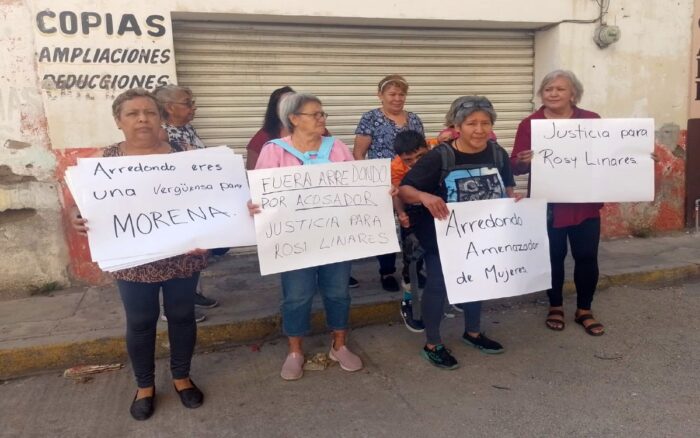 COPIAS
AMPLIACIONES
REDUCCIONES
Arredondo eres
una vergüensa para
MORENA.
FUERA ARREDONDO
POR ACOSADOR
JUSTICIA PARA
ROSI LINARES
Arredondo
Amenazador
de Mujeres
Justicia para
Rosy Linares